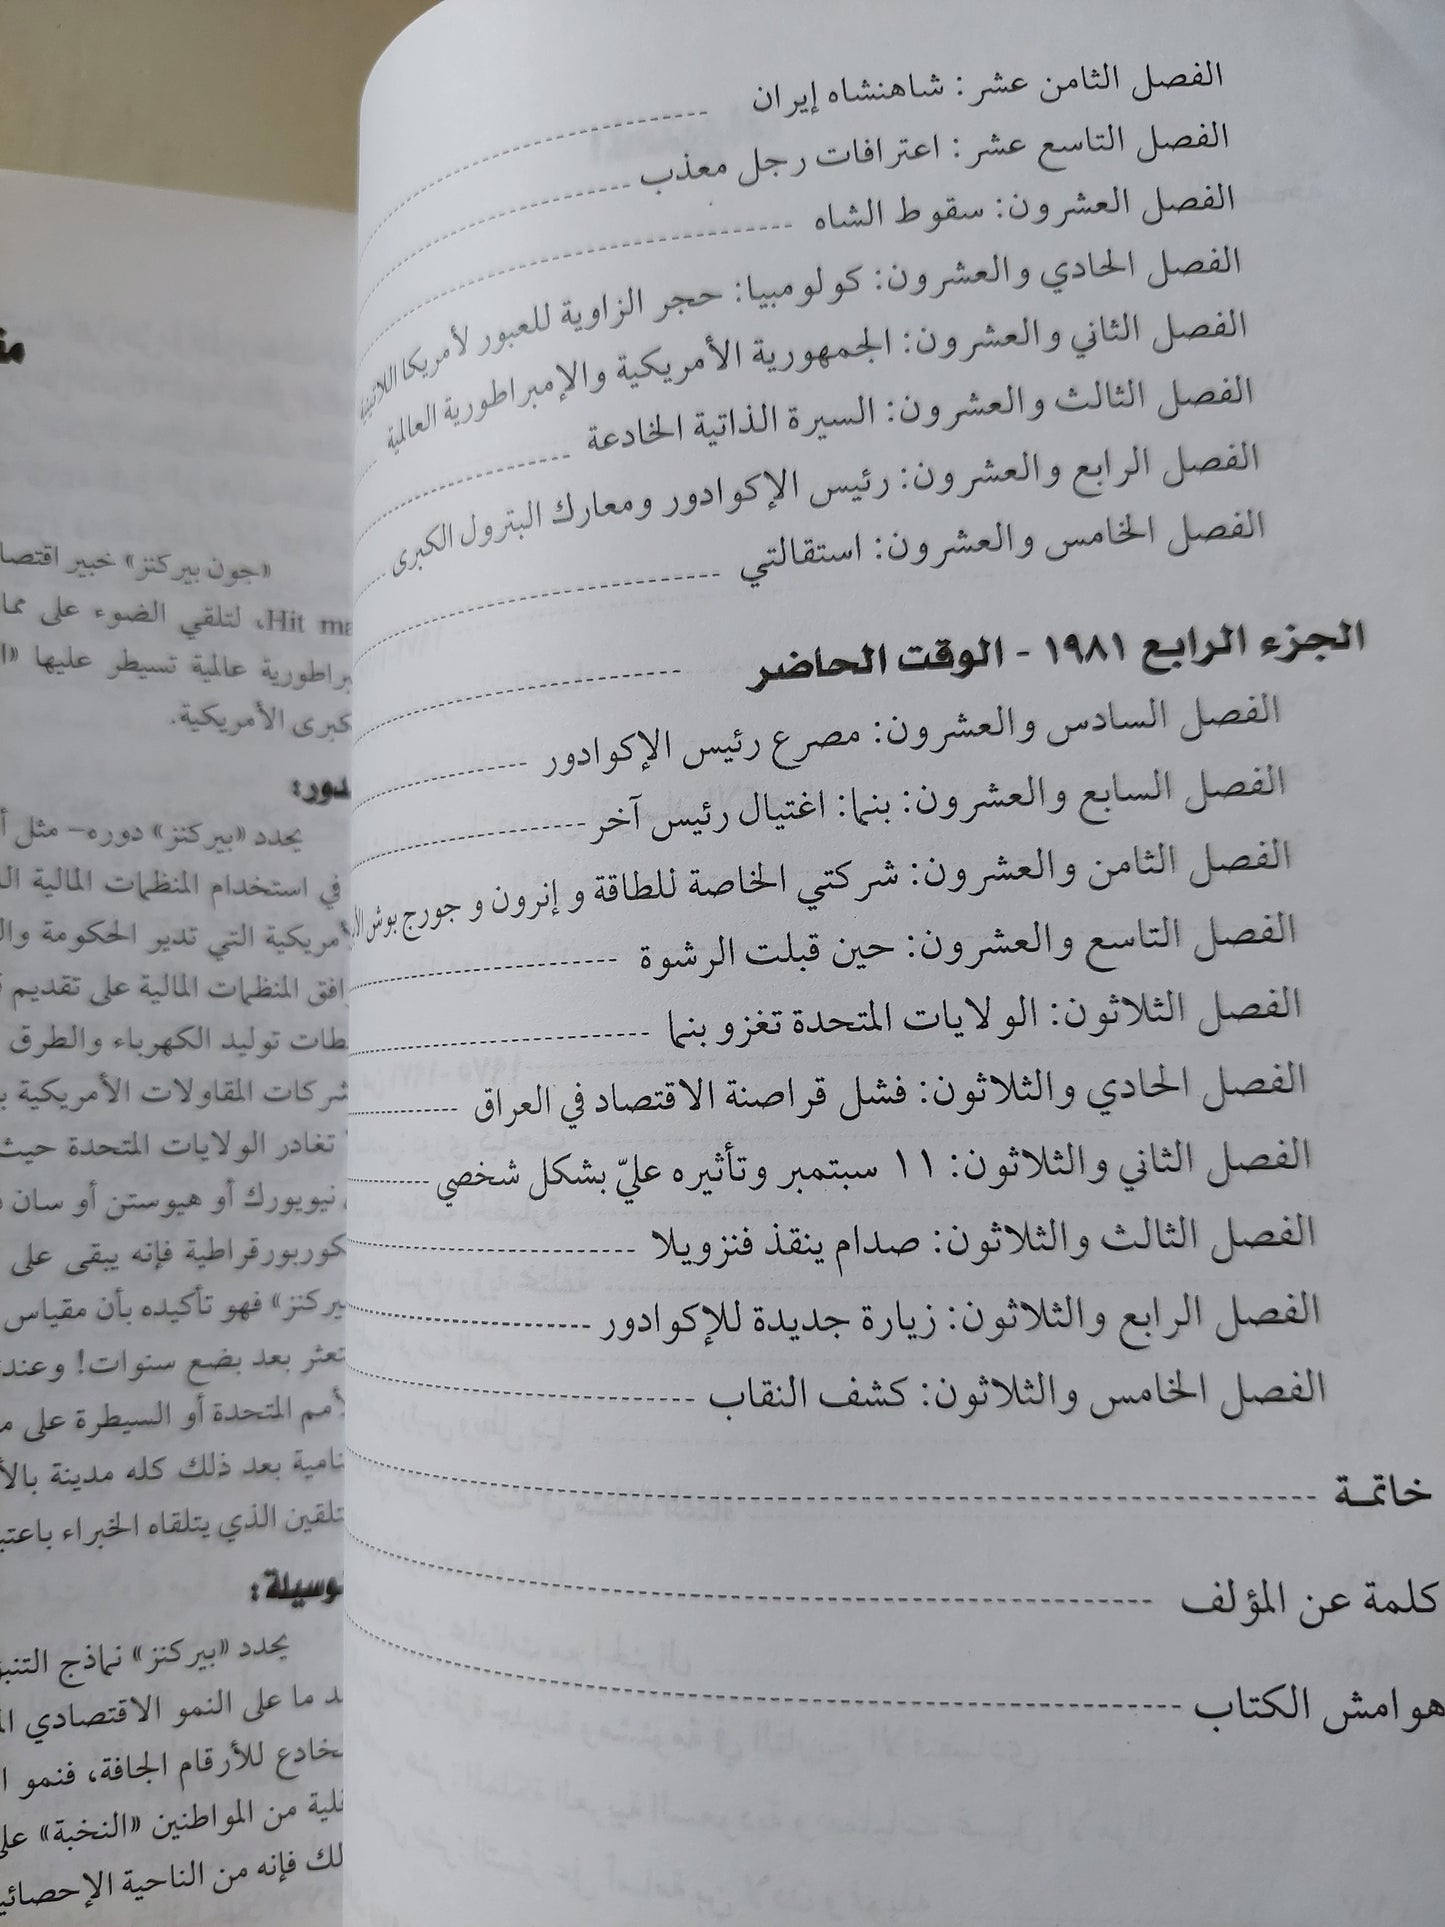 الفصل الثامن عشر: شاهنشاه إيران
الفصل التاسع عشر: اعترافات رجل معذب
الفصل العشرون: سقوط الشاه
الفصل الحادي والعشرون: كولومبيا: حجر الزاوية للعبور لأمريكا اللاتينية
الفصل الثاني والعشرون: الجمهورية الأمريكية والإمبراطورية العالمية
الفصل الثالث والعشرون: السيرة الذاتية الخادعة
الفصل الرابع والعشرون: رئيس الإكوادور ومعارك البترول الكبرى
الفصل الخامس والعشرون: استقالتي
الجزء الرابع ١٩٨١ - الوقت الحاضر
الفصل السادس والعشرون: مصرع رئيس الإكوادور
الفصل السابع والعشرون: بنما: اغتيال رئيس آخر
الفصل الثامن والعشرون: شركتي الخاصة للطاقة و إنرون و جورج بوش
الفصل التاسع والعشرون: حين قبلت الرشوة
الفصل الثلاثون: الولايات المتحدة تغزو بنما
الفصل الحادي والثلاثون: فشل قراصنة الاقتصاد في العراق
الفصل الثاني والثلاثون: ١١ سبتمبر وتأثيره عليّ بشكل شخصي
الفصل الثالث والثلاثون: صدام ينقذ فنزويلا
الفصل الرابع والثلاثون: زيارة جديدة للإكوادور
الفصل الخامس والثلاثون: كشف النقاب
خاتمـة
كلمة عن المؤلف
هوامش الكتاب
«جون بيركنز» خبير
Hit، لتلقي الضوء على
عالمية تسيطر عليها
الأمريكية.
يحدد «بيركنز» دوره– مثل
في استخدام المنظمات المالية
التي تدير الحكومة
المنظمات المالية على تقديم
توليد الكهرباء والطرق
المقاولات الأمريكية
تغادر الولايات المتحدة
نيويورك أو هيوستن أو سان
فإنه يبقى على
فهو تأكيده بأن مقياس
بعد بضع سنوات! وعند
المتحدة أو السيطرة على
بعد ذلك كله مدينة
الذي يتلقاه الخبراء
يحدد «بيركنز» نماذج
ما على النمو الاقتصادي
للأرقام الجافة، فنمو
من المواطنين «النخبة»
فإنه من الناحية